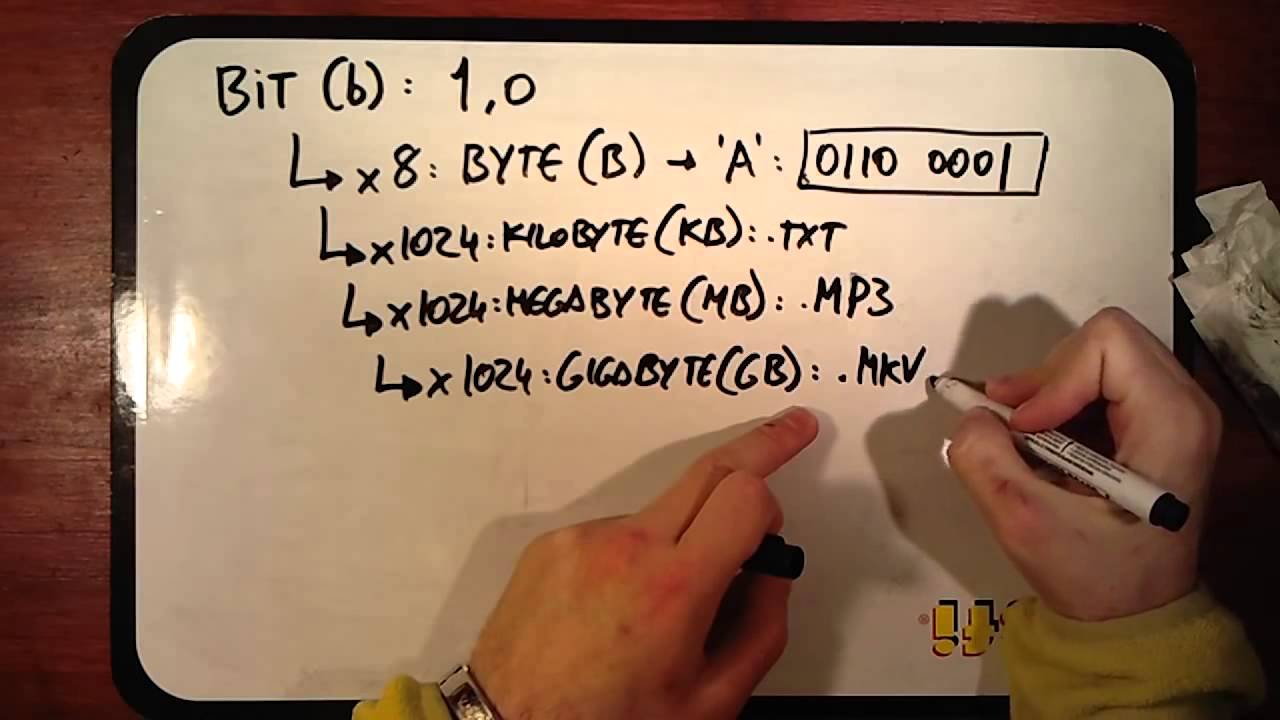 BiT (b) : 1,0
x 8 : BYTE (B) → 'A' : 0110 0001
x1024 : KILOBYTE (KB) : .TXT
x1024 : MEGABYTE (MB) : .MP3
x1024 : GIGABYTE (GB) : .MKV